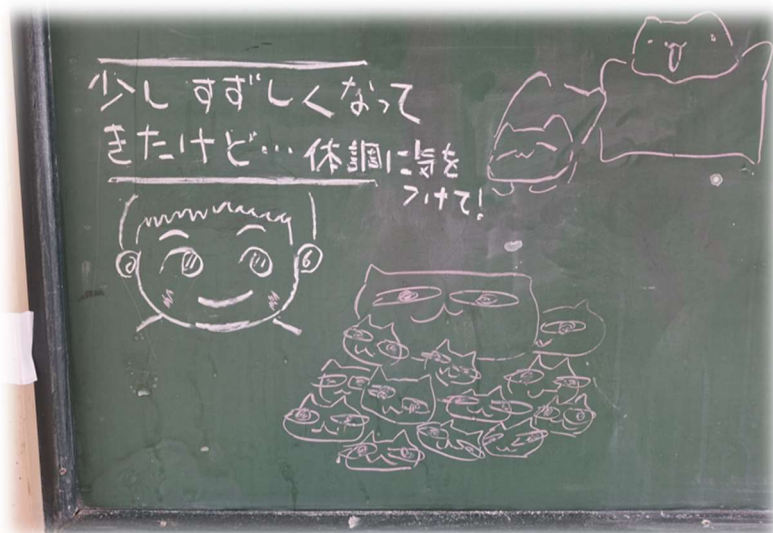 少しすずしくなって
きたけど…体調に気を
つけて!